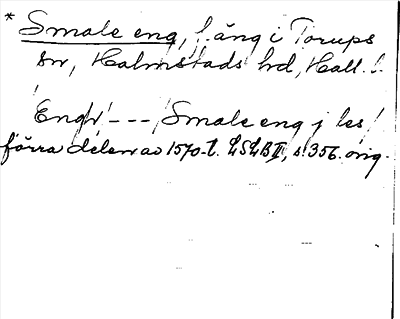 * Smale eng, f. äng i Torups
sn, Halmstads hd, Hall. l.
Engr --- Smale eng j les
förra delen av 1570-t. LSLB II, s. 356. orig.